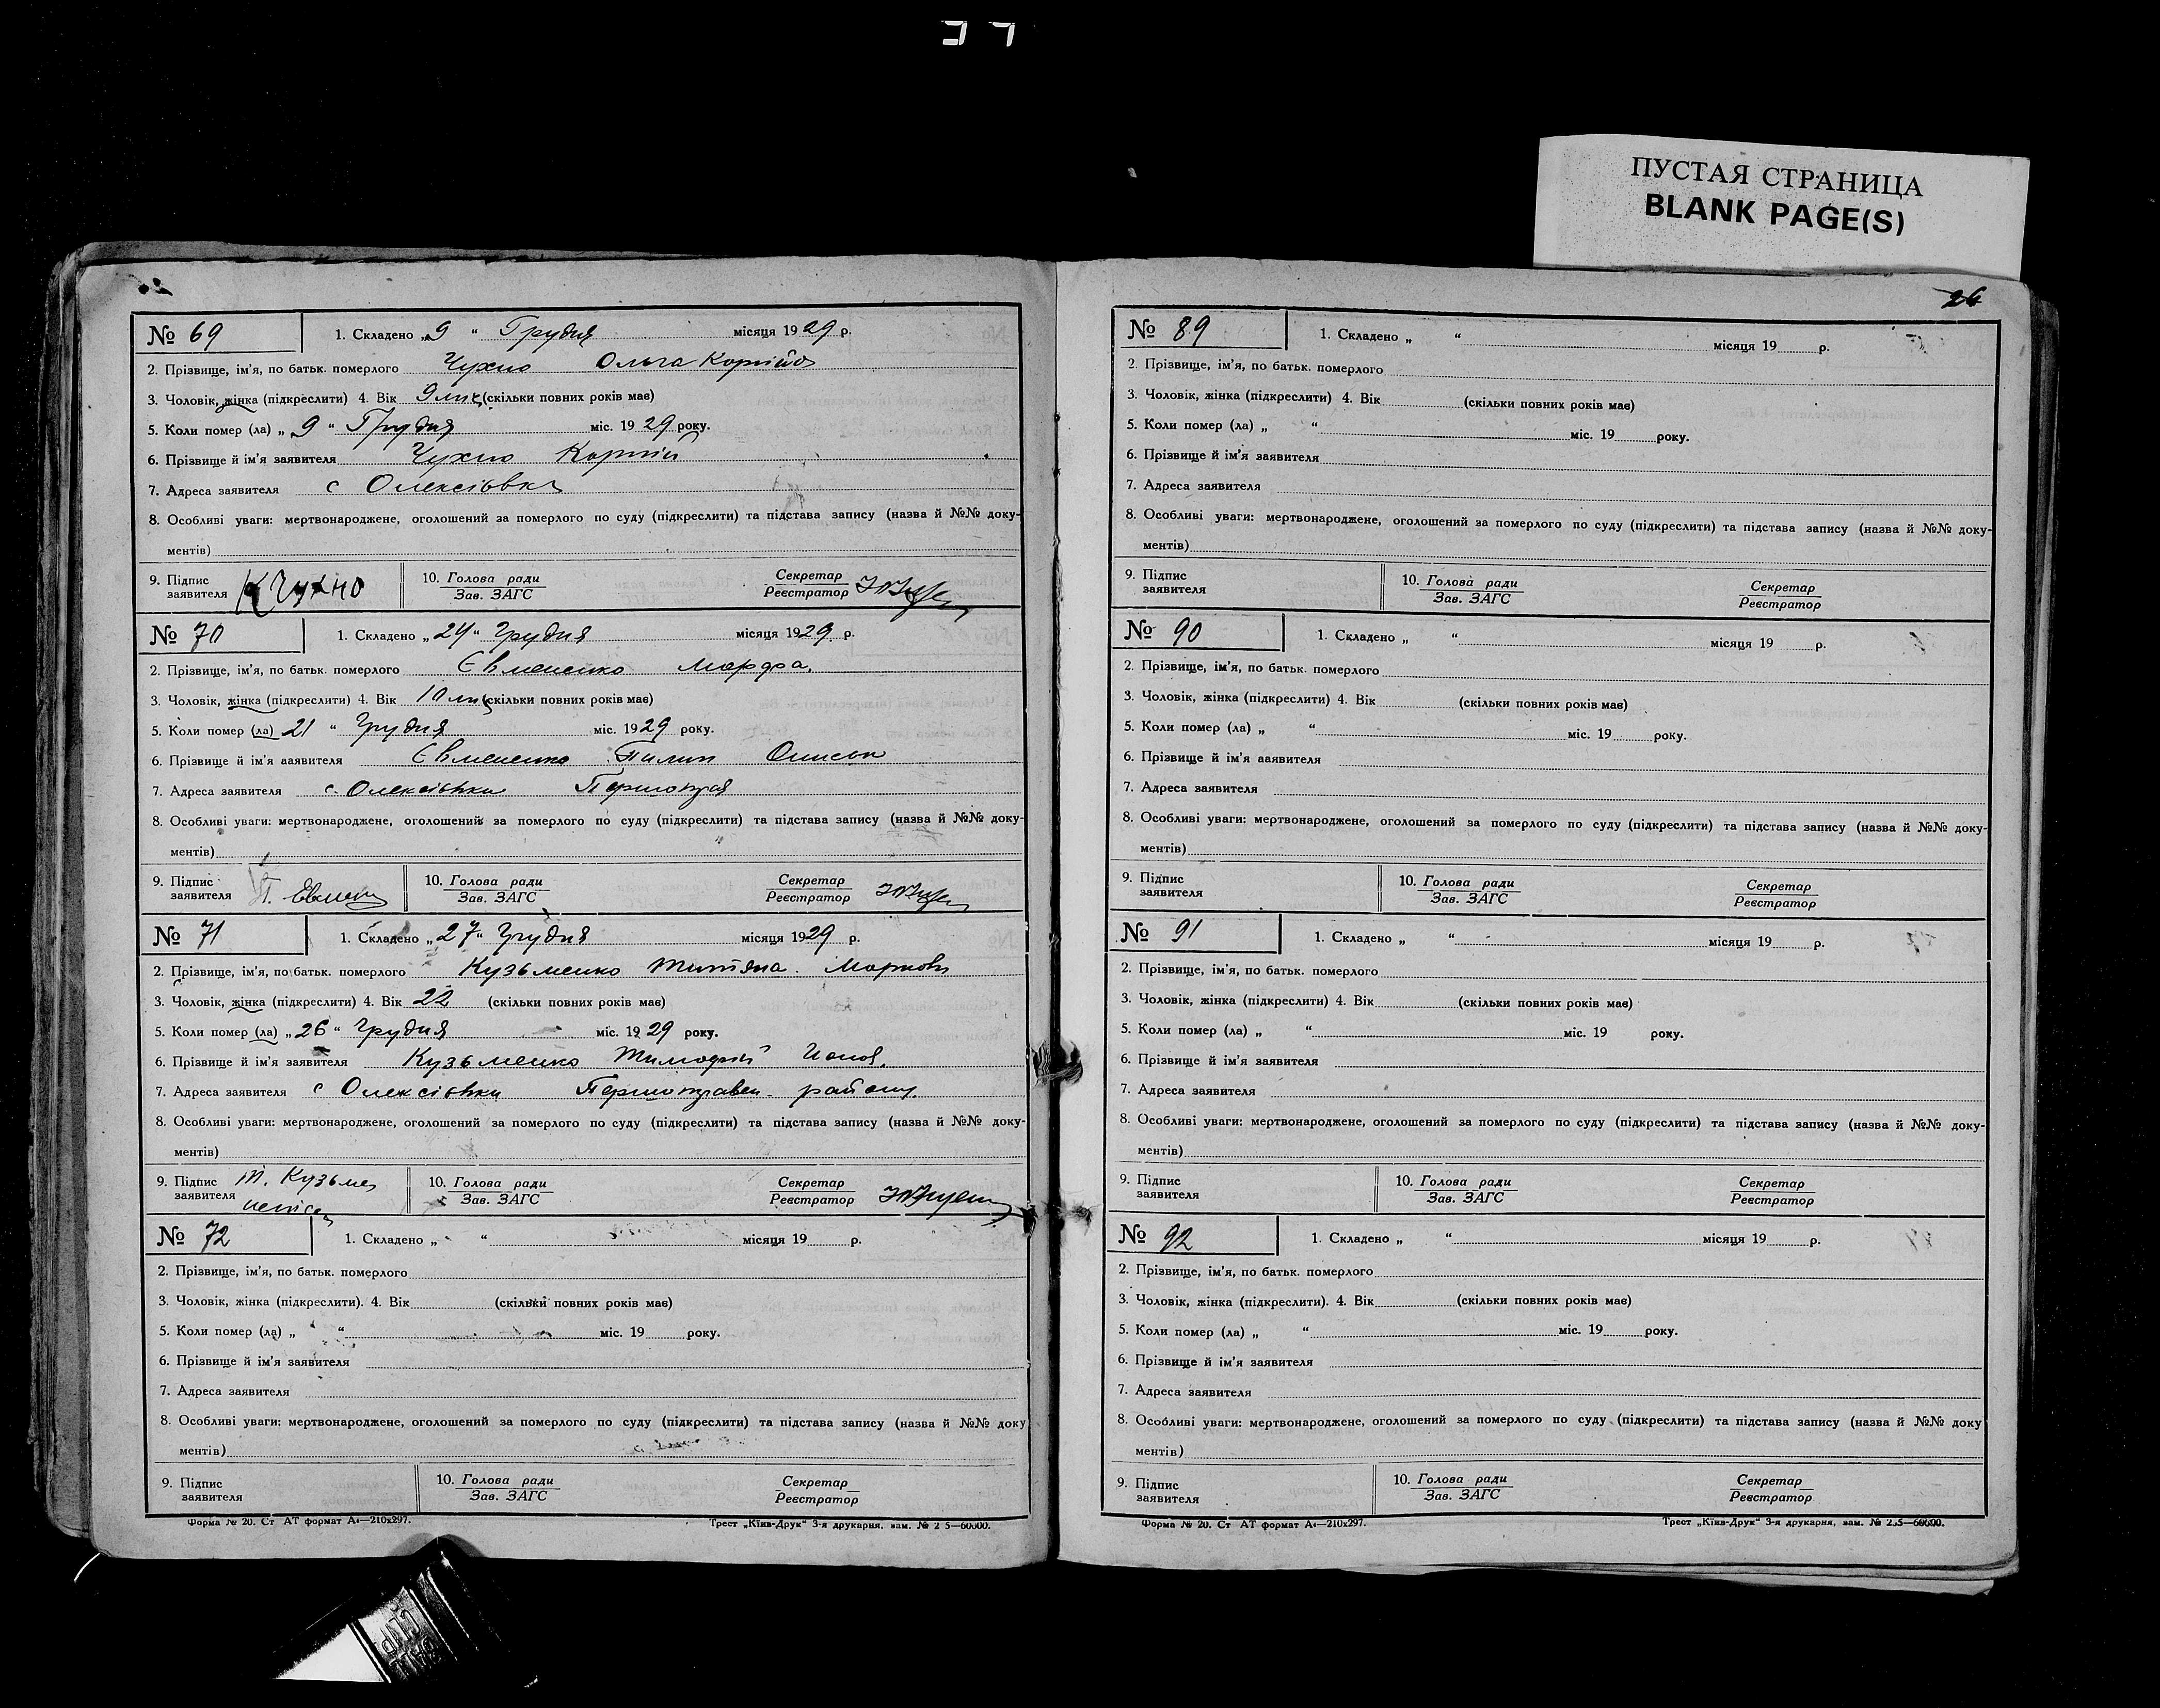 ПУСТАЯ СТРАНИЦА
BLANK PAGE(S)
№ 69 1. Складено „9“ Грудня місяця 1929 р.
2. Прізвище, ім'я, по батьк. померлого Чухно Ольга Корній
3. Чоловік, жінка (підкреслити) 4. Вік 9 (скільки повних років має)
5. Коли помер (ла) „9“ Грудня міс. 1929 року.
6. Прізвище й ім'я заявителя Чухно Корній
7. Адреса заявителя с Олексіївка
8. Особливі уваги: мертвонароджене, оголошений за померлого по суду (підкреслити) та підстава запису (назва й №№ доку-
ментів)
9. Підпис заявителя К Чухно 10. Голова ради Зав. ЗАГС Секретар Реєстратор
№ 70 1. Складено „24“ Грудня місяця 1929 р.
2. Прізвище, ім'я, по батьк. померлого Євмененко Марфа.
3. Чоловік, жінка (підкреслити) 4. Вік 10 (скільки повних років має)
5. Коли помер (ла) 21 “ Грудня міс. 1929 року.
6. Прізвище й ім'я заявителя Євмененко Пилип
7. Адреса заявителя с. Олексіївки
8. Особливі уваги: мертвонароджене, оголошений за померлого по суду (підкреслити) та підстава запису (назва й №№ доку-
ментів)
9. Підпис заявителя П. Евмен 10. Голова ради Зав. ЗАГС Секретар Реєстратор
№ 71 1. Складено „27“ Грудня місяця 1929 р.
2. Прізвище, ім'я, по батьк. померлого Кузьменко Титяна. Марков
3. Чоловік, жінка (підкреслити) 4. Вік 22 (скільки повних років має)
5. Коли помер (ла) „26“ Грудня міс. 1929 року.
6. Прізвище й ім'я заявителя Кузьменко Тимофій
7. Адреса заявителя с Олексіївки Першотравен. району.
8. Особливі уваги: мертвонароджене, оголошений за померлого по суду (підкреслити) та підстава запису (назва й №№ доку-
ментів)
9. Підпис заявителя Т. Кузьме 10. Голова ради Зав. ЗАГС Секретар Реєстратор
№ 72 1. Складено „ “ місяця 19 р.
2. Прізвище, ім'я, по батьк. померлого
3. Чоловік, жінка (підкреслити). 4. Вік (скільки повних років має)
5. Коли помер (ла) „ “ міс. 19 року.
6. Прізвище й ім'я заявителя
7. Адреса заявителя
8. Особливі уваги: мертвонароджене, оголошений за померлого по суду (підкреслити) та підстава запису (назва й №№ доку
ментів)
9. Підпис заявителя 10. Голова ради Зав. ЗАГС Секретар Реєстратор
Форма № 20. Ст АТ формат А4—210x297. Трест „Київ-Друк“ 3-я друкарня, зам. № 2 5—60000.
26
№ 89 1. Складено „ “ місяця 19 р.
2. Прізвище, ім'я, по батьк. померлого
3. Чоловік, жінка (підкреслити) 4. Вік (скільки повних років має)
5. Коли помер (ла) „ “ міс. 19 року.
6. Прізвище й ім'я заявителя
7. Адреса заявителя
8. Особливі уваги: мертвонароджене, оголошений за померлого по суду (підкреслити) та підстава запису (назва й №№ доку-
ментів)
9. Підпис заявителя 10. Голова ради Зав. ЗАГС Секретар Реєстратор
№ 90 1. Складено „ “ місяця 19 р.
2. Прізвище, ім'я, по батьк. померлого
3. Чоловік, жінка (підкреслити) 4. Вік (скільки повних років має)
5. Коли помер (ла) „ “ міс. 19 року.
6. Прізвище й ім'я заявителя
7. Адреса заявителя
8. Особливі уваги: мертвонароджене, оголошений за померлого по суду (підкреслити) та підстава запису (назва й №№ доку-
ментів)
9. Підпис заявителя 10. Голова ради Зав. ЗАГС Секретар Реєстратор
№ 91 1. Складено „ “ місяця 19 р.
2. Прізвище, ім'я, по батьк. померлого
3. Чоловік, жінка (підкреслити) 4. Вік (скільки повних років має)
5. Коли помер (ла) „ “ міс. 19 року.
6. Прізвище й ім'я заявителя
7. Адреса заявителя
8. Особливі уваги: мертвонароджене, оголошений за померлого по суду (підкреслити) та підстава запису (назва й №№ доку-
ментів)
9. Підпис заявителя 10. Голова ради Зав. ЗАГС Секретар Реєстратор
№ 92 1. Складено „ “ місяця 19 р.
2. Прізвище, ім'я, по батьк. померлого
3. Чоловік, жінка (підкреслити). 4. Вік (скільки повних років має)
5. Коли помер (ла) „ “ міс. 19 року.
6. Прізвище й ім'я заявителя
7. Адреса заявителя
8. Особливі уваги: мертвонароджене, оголошений за померлого по суду (підкреслити) та підстава запису (назва й №№ доку
ментів)
9. Підпис заявителя 10. Голова ради Зав. ЗАГС Секретар Реєстратор
Форма № 20. Ст АТ формат А4—210x297. Трест „Київ-Друк“ 3-я друкарня, зам. № 235—60000.